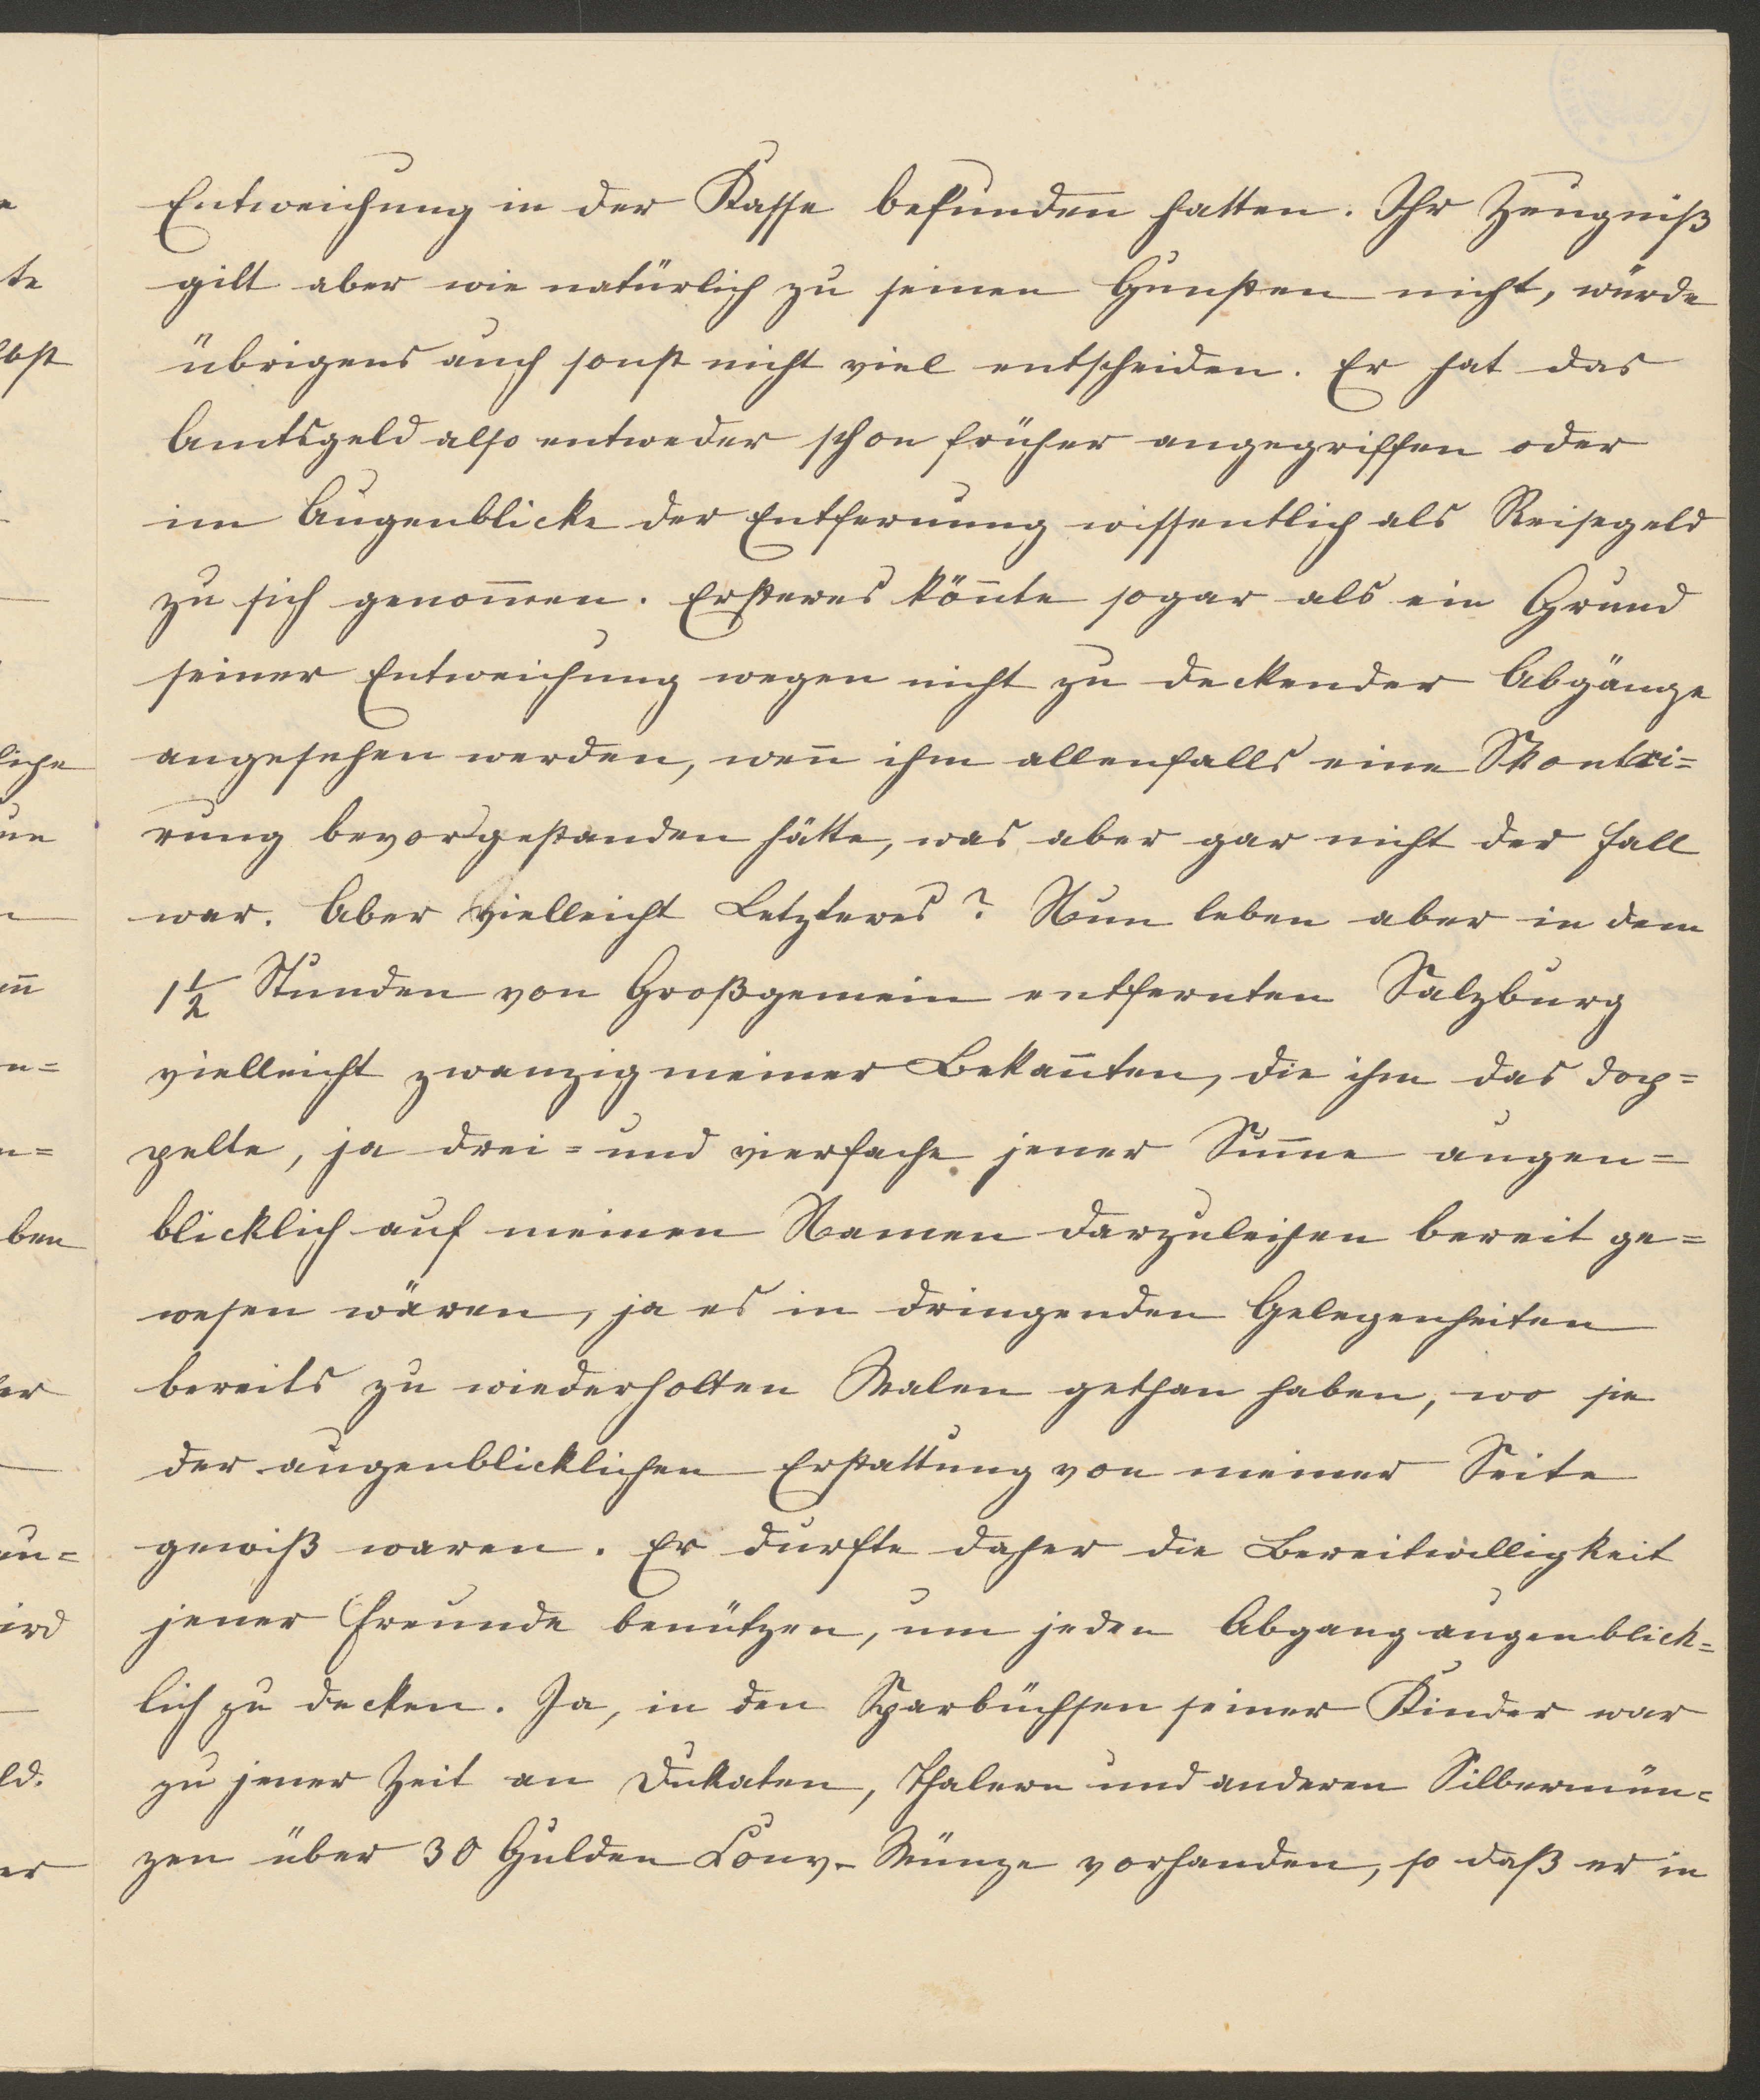 Entweichung in der Kasse befunden hatten. Ihr Zeugniß
gilt aber wie natürlich zu seinen Gunsten nicht, würde
übrigens auch sonst nicht viel entscheiden. Er hat das
Amtsgeld also entweder schon früher angegriffen oder
im Augenblicke der Entfernung wissentlich als Reisegeld
zu sich genom̅en. Ersteres kön̅te sogar als ein Grund
seiner Entweichung wegen nicht zu deckender Abgänge
angesehen werden, wen̅ ihm allenfalls eine Skontri=
rung bevorgestanden hätte, was aber gar nicht der Fall
war. Aber vielleicht Letzteres? Nun leben aber in dem
1½ Stunden von Großgemein entfernten Salzburg
vielleicht zwanzig meiner Bekan̅ten, die ihm das dop=
pelte, ja drei= und vierfache jener Sum̅e augen=
blicklich auf meinen Namen darzuleihen bereit ge=
wesen wären, ja es in dringenden Gelegenheiten
bereits zu wiederholten Malen gethan haben, wo sie
der augenblicklichen Erstattung von meiner Seite
gewiß waren. Er durfte daher die Bereitwilligkeit
jener Freunde benützen, um jeden Abgang augenblick=
lich zu decken. Ja, in den Sparbüchsen seiner Kinder war
zu jener Zeit an Dukaten, Thalern und anderen Silbermün=
zen über 30 Gulden Conv- Münze vorhanden, so daß er in